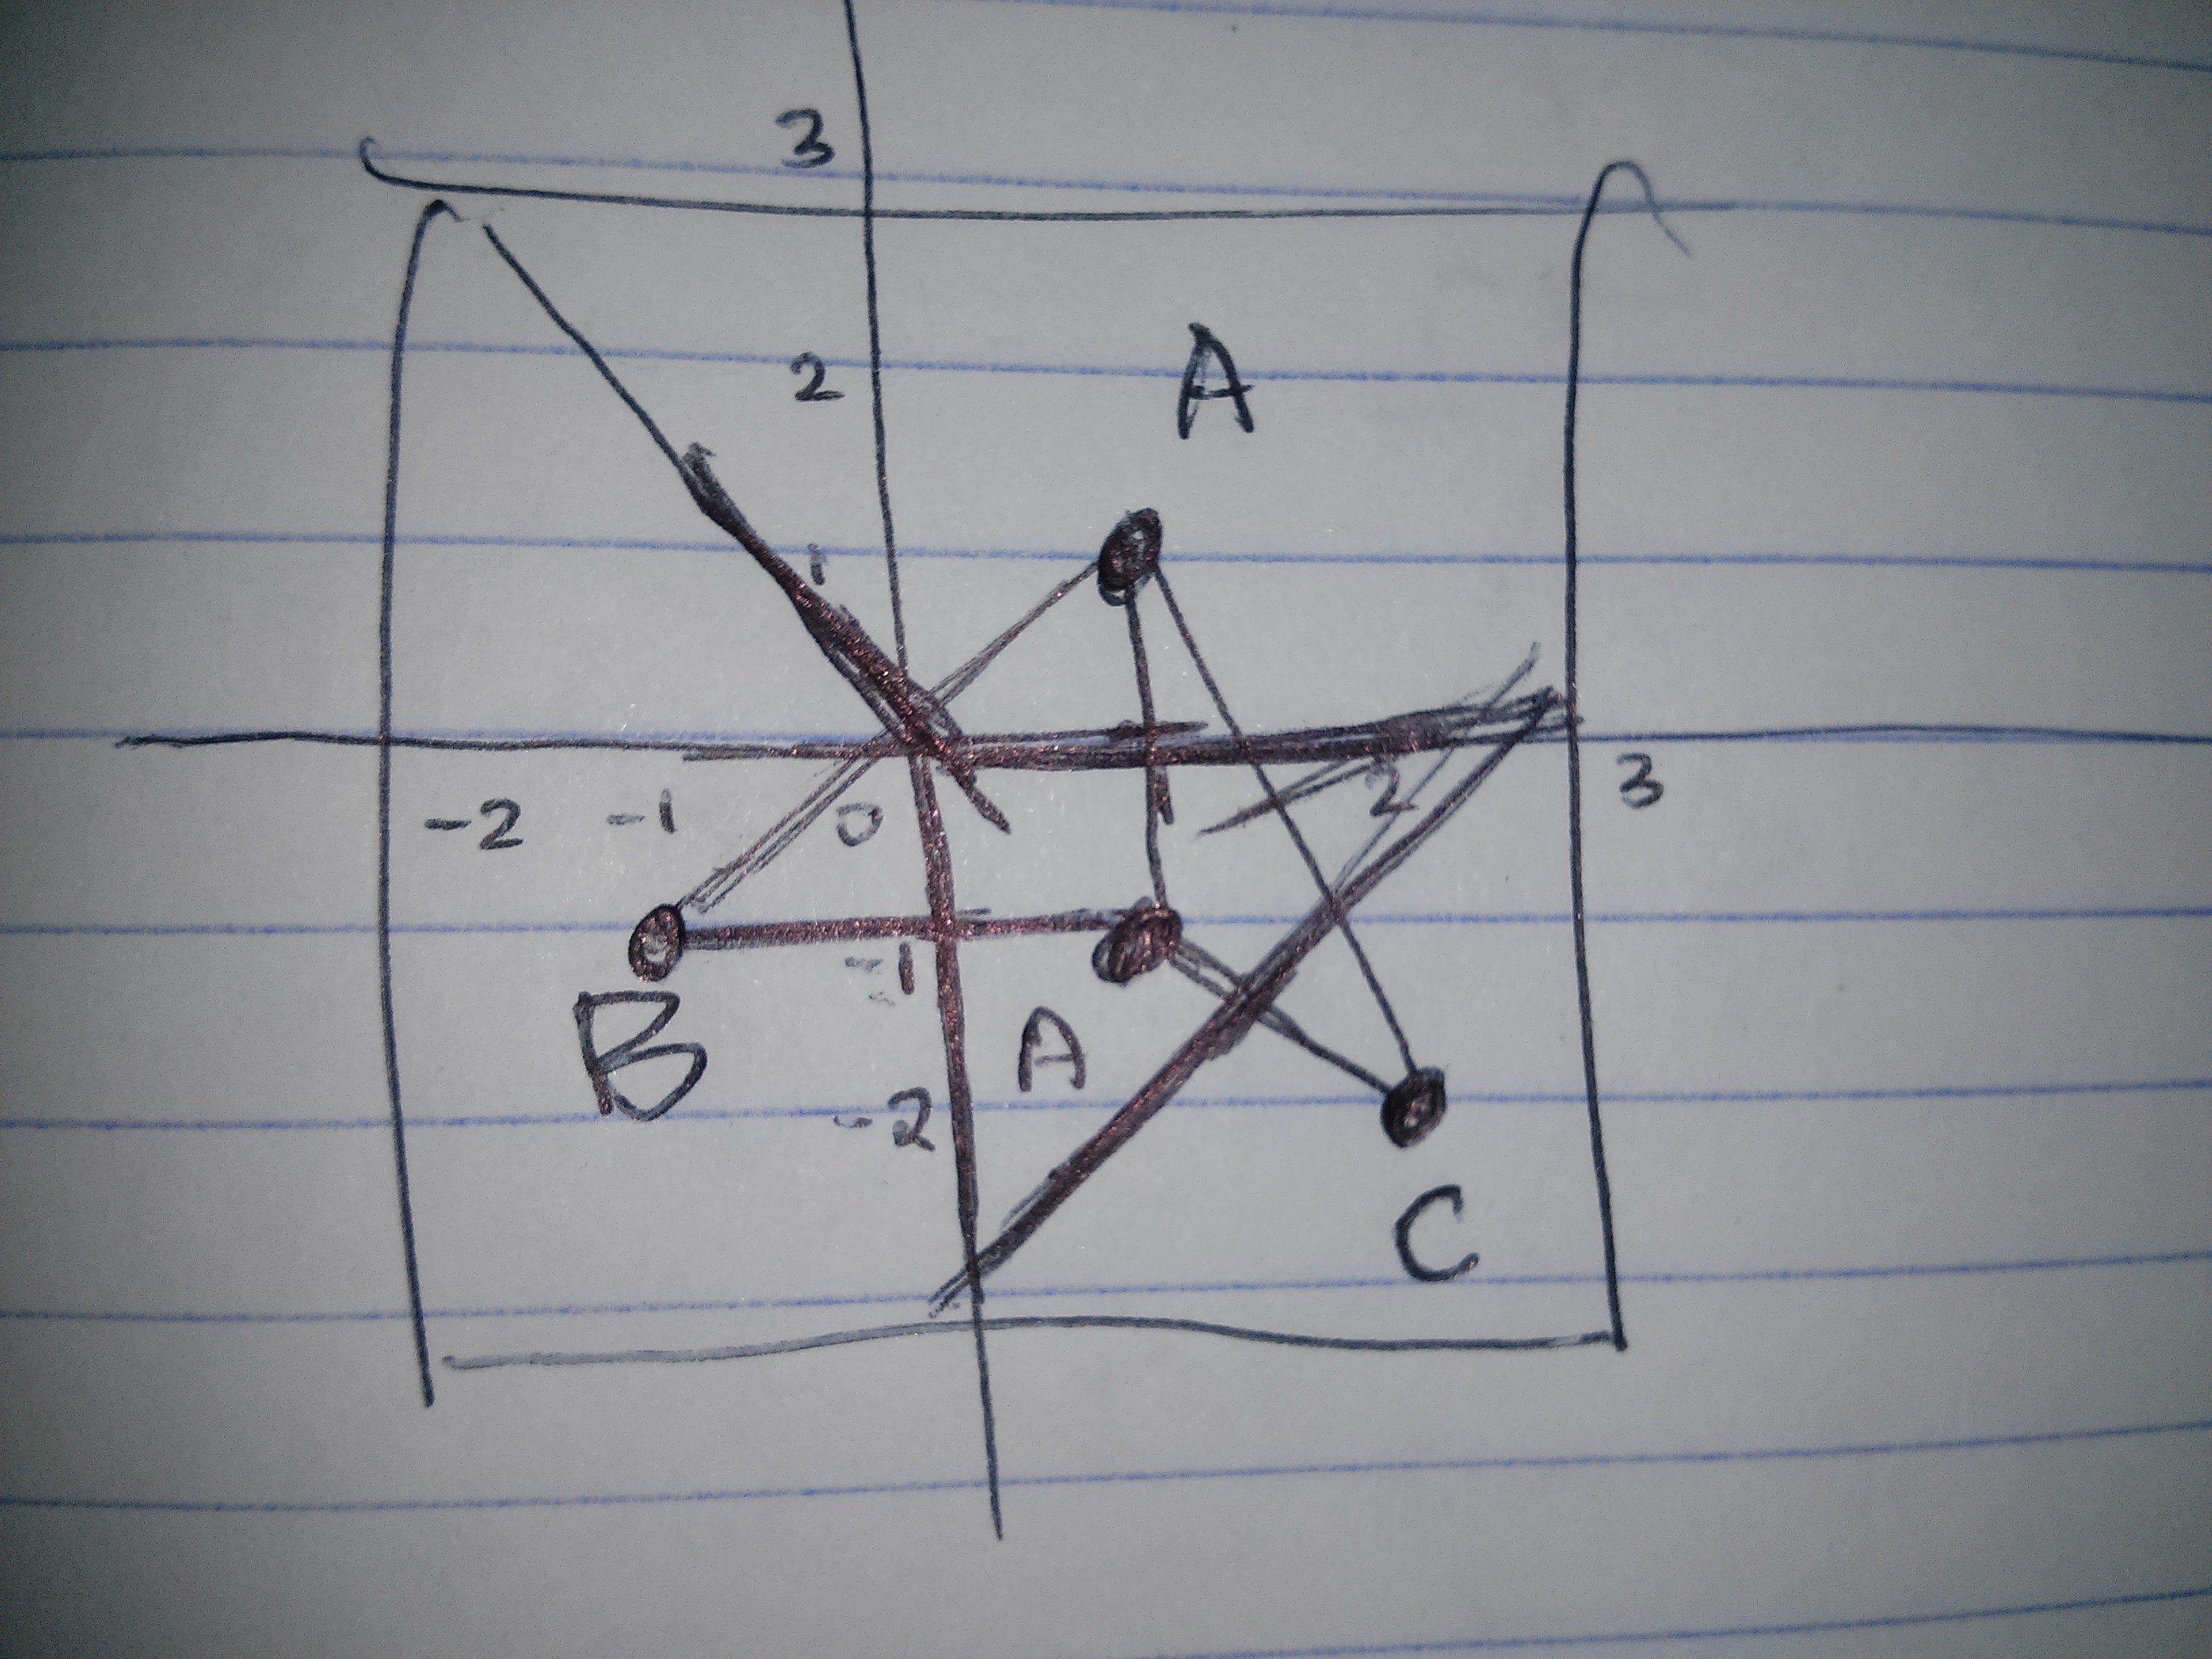 3
2
A
1
-2 -1 0 2 3
-1
B A
-2
C